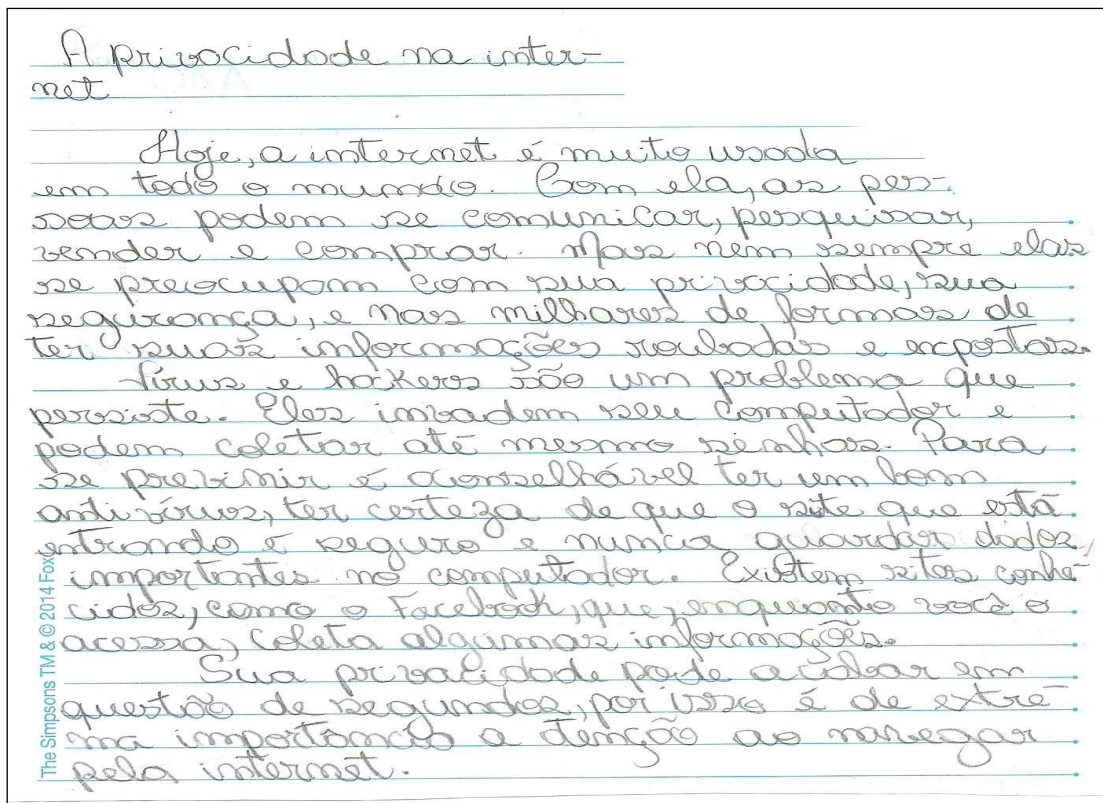 A privacidade na inter-
net
Hoje, a internet é muito usada
em todo o mundo. Com ela, as pes-
soas podem se comunicar, pesquisar,
vender e comprar. Mas nem sempre elas
se preocupam com sua privacidade, sua
segurança, e nas milhares de formas de
ter suas informações roubadas e expostas.
Vírus e hackers são um problema que
persiste. Eles invadem seu computador e
podem coletar até mesmo senhas. Para
se previnir é aconselhável ter um bom
antivírus, ter certeza de que o site que está
entrando é seguro e nunca guardar dados,
importantes no computador. Existem sites conhe-
cidos, como o Facebook, que, enquanto você o
acessa, coleta algumas informações.
Sua privacidade pode acabar em
questão de segundos, por isso é de extre-
ma importância a tenção ao navegar
pela internet.
The Simpsons TM & © 2014 Fox